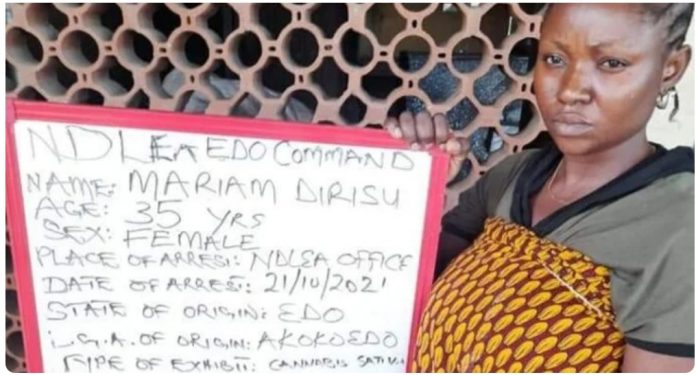 NDLEA EDO COMMAND
NAME: MARIAM DIRISU
AGE: 35 YRS
SEX: FEMALE
PLACE OF ARREST: NDLEA OFFICE
DATE OF ARREST: 21/10/2021
STATE OF ORIGIN: EDO
L.G.A. OF ORIGIN: AKOKOEDO
TYPE OF EXHIBIT: CANNABIS SATIVA